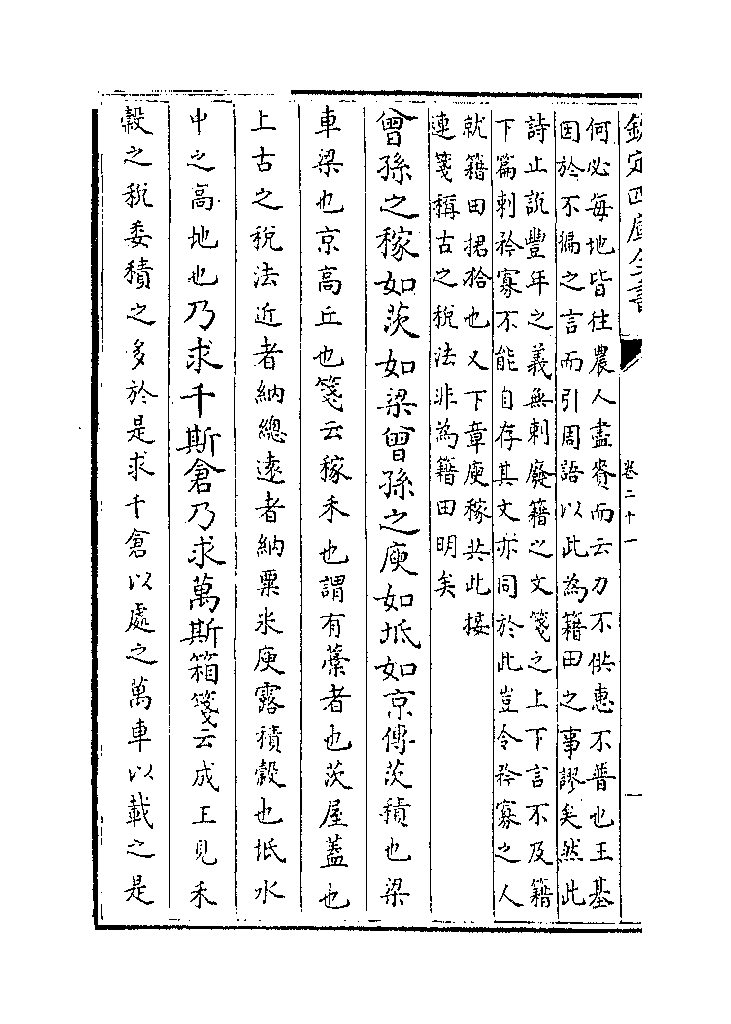 欽定四庫全書
卷二十一
一
何必每地皆往農人盡賚而云力不供惠不普也王基
因於不徧之言而引周語以此為籍田之事謬矣然此
詩止說豐年之義無刺廢籍之文箋之上下言不及籍
下篇刺矜寡不能自存其文亦同於此豈令矜寡之人
就籍田捃拾也又下章庾稼共此接
連箋稱古之稅法非為籍田明矣
曾孫之稼如茨如梁曾孫之庾如坻如京傳茨積也梁
車梁也京高丘也箋云稼禾也謂有藳者也茨屋蓋也
上古之稅法近者納總遠者納粟米庾露積穀也坻水
中之高地也乃求千斯倉乃求萬斯箱箋云成王見禾
穀之稅委積之多於是求千倉以處之萬車以載之是